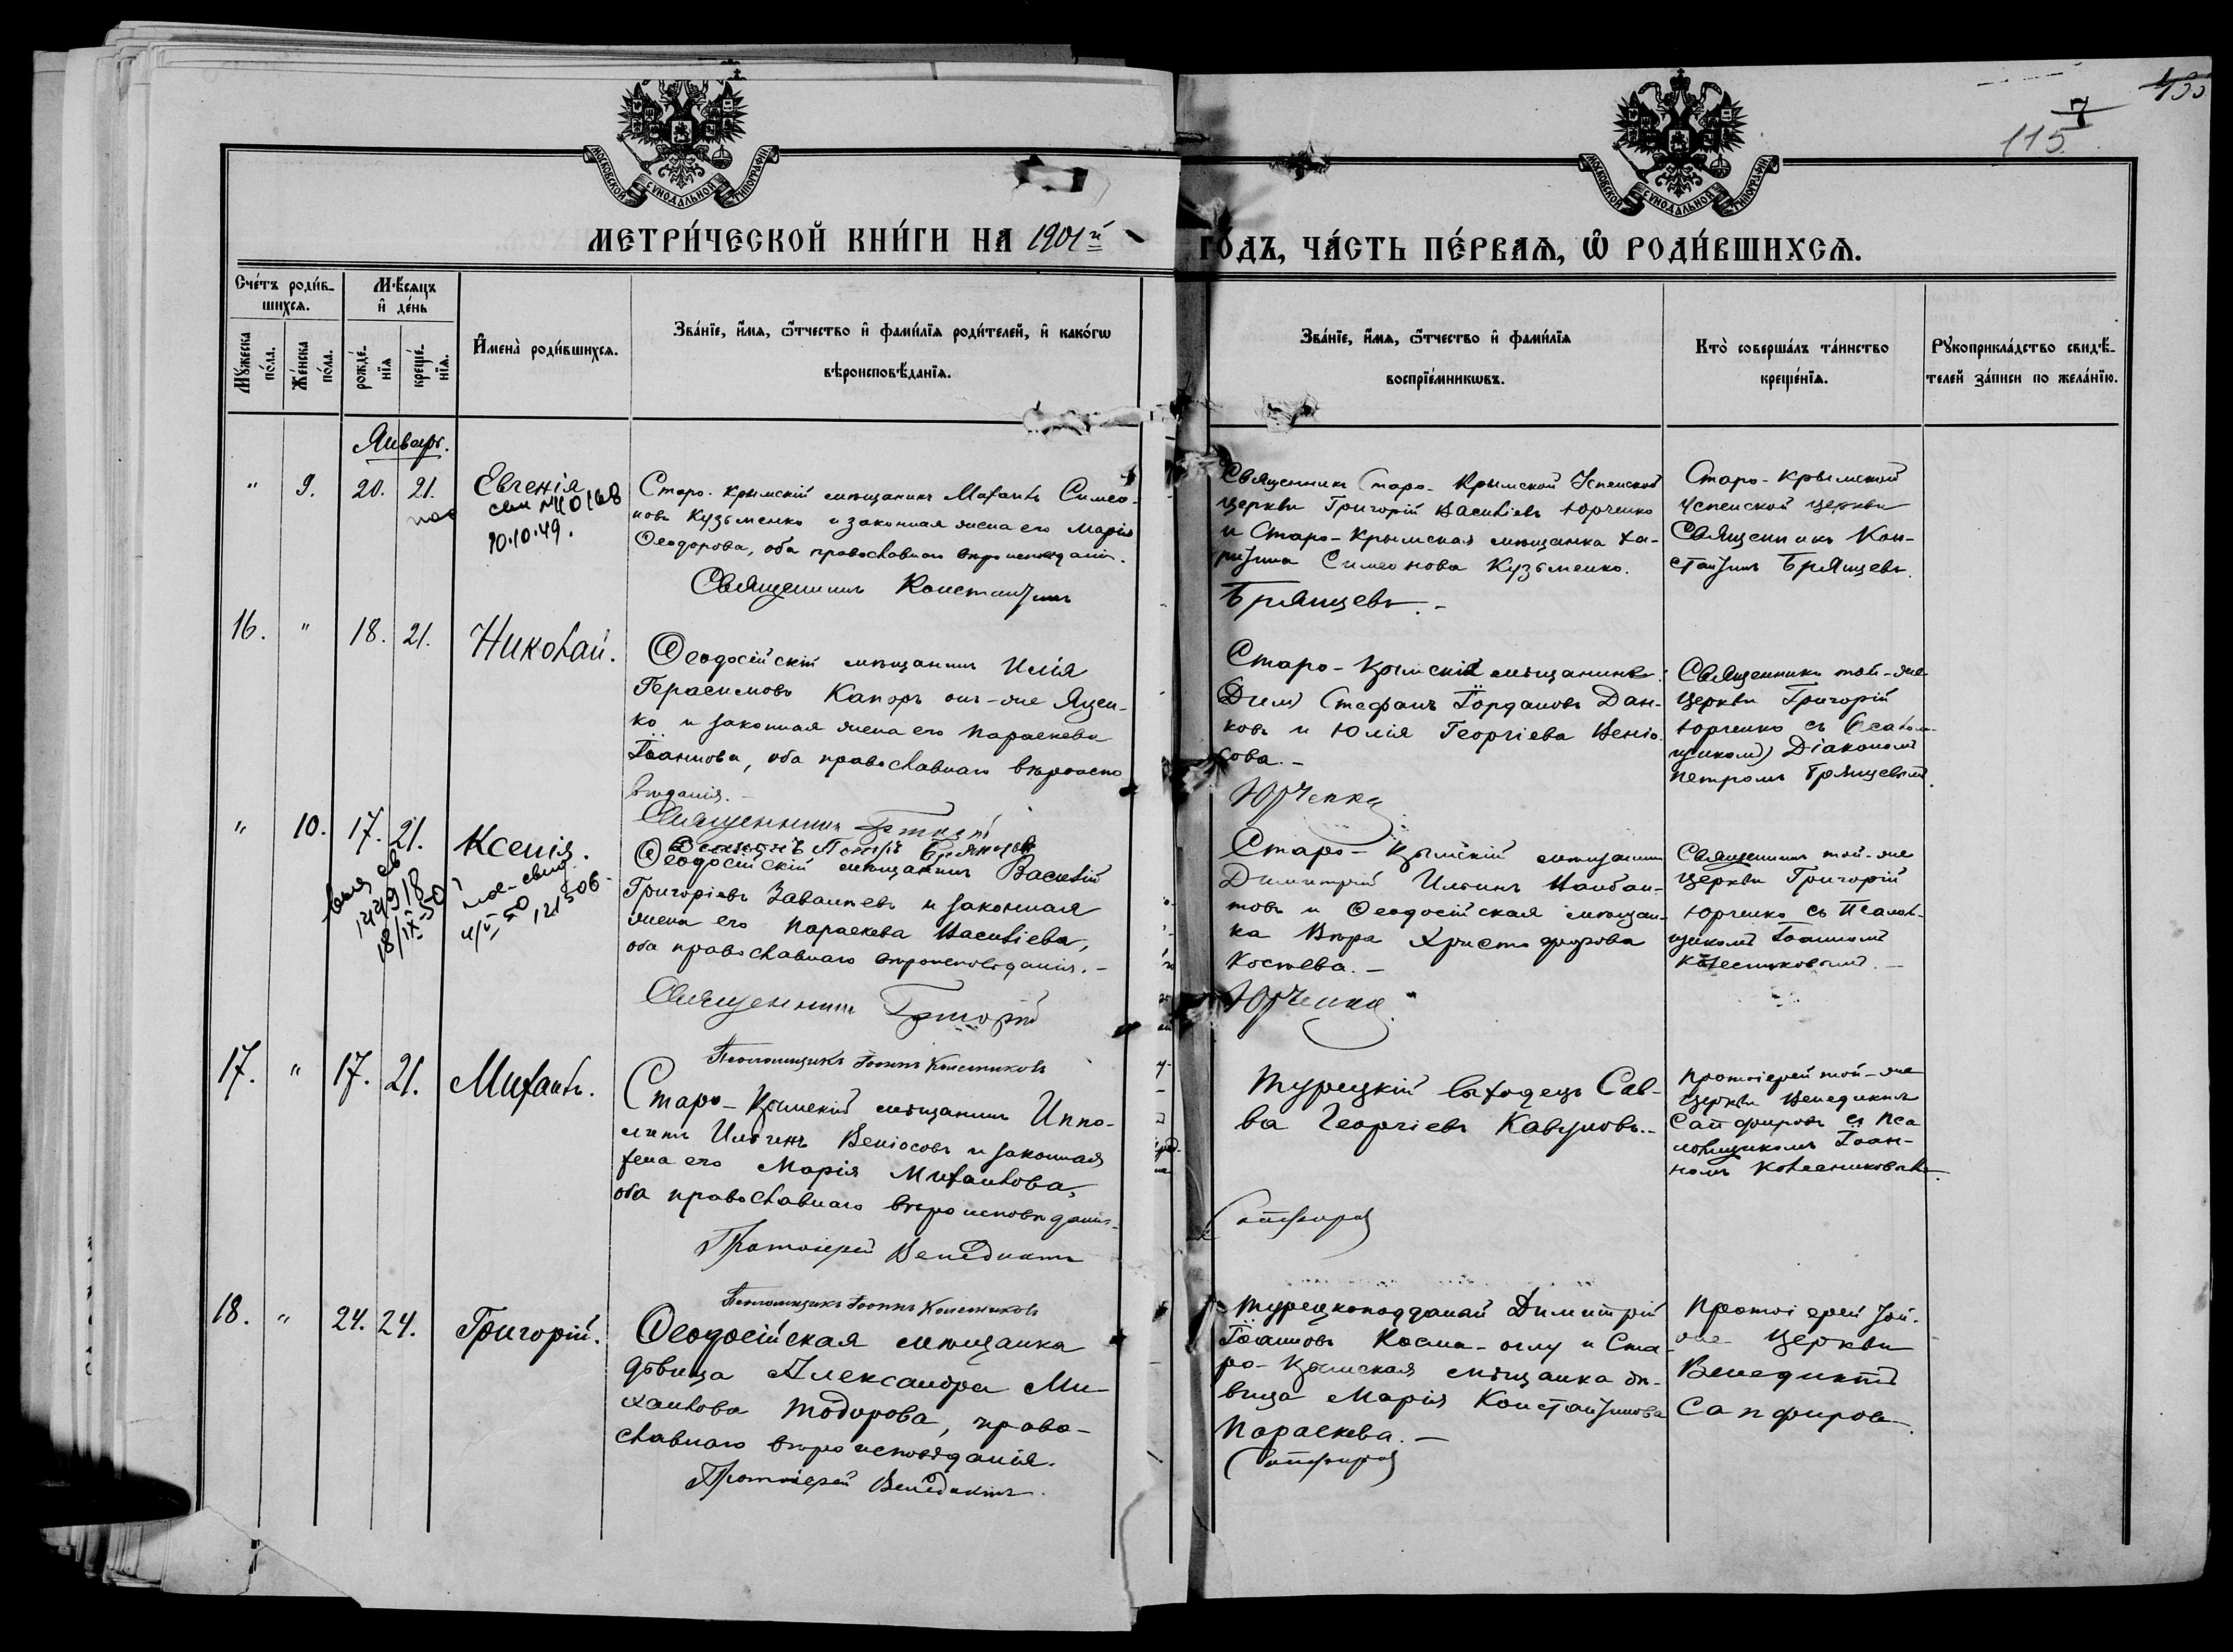 115 7
МОСКОВСКОЙ СУНОДАЛЬНОЙ ТИПОГРАФІИ
МОСКОВСКОЙ СУНОДАЛЬНОЙ ТИПОГРАФІИ
МЕТРИ́ЧЕСКОЙ КНИ́ГИ НА 1901й ГО́ДЪ, ЧА́СТЬ ПЕ́РВАѦ, Ѡ҆ РОДИ́ВШИХСѦ.
Сче́тъ роди́в-
шихсѧ.
Мꙋ́жеска по́ла.
Же́нска по́ла.
Мѣ́сѧцъ
и҆ де́нь
рожде́-
нїѧ
креще́-
нїѧ.
И҆мена̀ роди́вшихсѧ.
Зва́нїе, и҆́мѧ, ѻ҆́тчество и҆ фами́лїѧ роди́телей, и҆ како́гѡ
вѣроисповѣ́данїѧ.
Зва́нїе, и҆́мѧ, ѻ҆́тчество и҆ фами́лїѧ
воспрїе́мникѡвъ.
Кто̀ соверша́лъ та́инство
креще́нїѧ.
Рꙋкоприкла́дство свидѣ́-
телей за́писи по жела́нїю.
Январь.
" 9. 20. 21. Евгенія
10.10.49.
Старо-Крымскій мѣщанинъ Михаилъ Симео-
новъ Кузьменко и законная жена его Марія
Ѳеодорова, оба православнаго вѣроисповѣданія.
Священникъ Константинъ
Священникъ Старо-Крымской Успенской
церкви Григорій Васильевъ Юрченко
и Старо-Крымская мѣщанка Ха-
ритина Симеонова Кузьменко.
Брянцевъ.
Старо-Крымской
Успенской церкви
Священникъ Кон-
стантинъ Брянцевъ.
16. " 18. 21. Николай.
Ѳеодосійскій мѣщанинъ Илія
Герасимовъ Капоръ онъ-же Яцен-
ко и законная жена его Параскева
Іоаннова, оба православнаго вѣроиспо
вѣданія.
Священникъ Григорій
Діаконъ Петръ Брянцевъ
Старо-Крымскій мѣщанинъ
Стефанъ Іордановъ Дан-
ковъ и Юлія Георгіева Веніо-
сова.
Юрченко
Священникъ той-же
церкви Григорій
Юрченко съ Псалом-
щикомъ Діакономъ
Петромъ Брянцевымъ.
" 10. 17. 21. Ксенія.
18/IX-50
121506
Ѳеодосійскій мѣщанинъ Василій
Григоріевъ и законная
жена его Параскева Васильева,
оба православнаго вѣроисповѣданія.
Священникъ Григорій
Псаломщикъ Іоаннъ Колесниковъ
Старо-Крымскій мѣщанинъ
Димитрій Ильинъ
товъ и Ѳеодосійская мѣщан-
ка Вѣра Христофорова
Костева.
Юрченко
Священникъ той-же
церкви Григорій
Юрченко съ Псалом-
щикомъ Іоанномъ
Колесниковымъ.
17. " 17. 21. Михаилъ.
Старо-Крымскій мѣщанинъ Иппо-
литъ Ильинъ Веніосовъ и законная
жена его Марія Михаилова,
оба православнаго вѣроисповѣданія.
Протоіерей Венедиктъ
Псаломщикъ Іоаннъ Колесниковъ
Турецкій выходецъ Сав-
ва Георгіевъ
Сапфировъ
Протоіерей той-же
церкви Венедиктъ
Сапфировъ съ Пса
ломщикомъ Іоан-
номъ Колесниковымъ.
18. " 24. 24. Григорій.
Ѳеодосійская мѣщанка
дѣвица Александра Ми-
хаилова Тодорова, право-
славнаго вѣроисповѣданія.
Протоіерей Венедиктъ
Турецкоподданый Димитрій
Іоанновъ Косма-оглу и Ста-
ро-Крымская мѣщанка дѣ-
вица Марія Константинова
Параскева.
Сапфировъ
Протоіерей той-
же церкви
Венедиктъ
Сапфировъ.